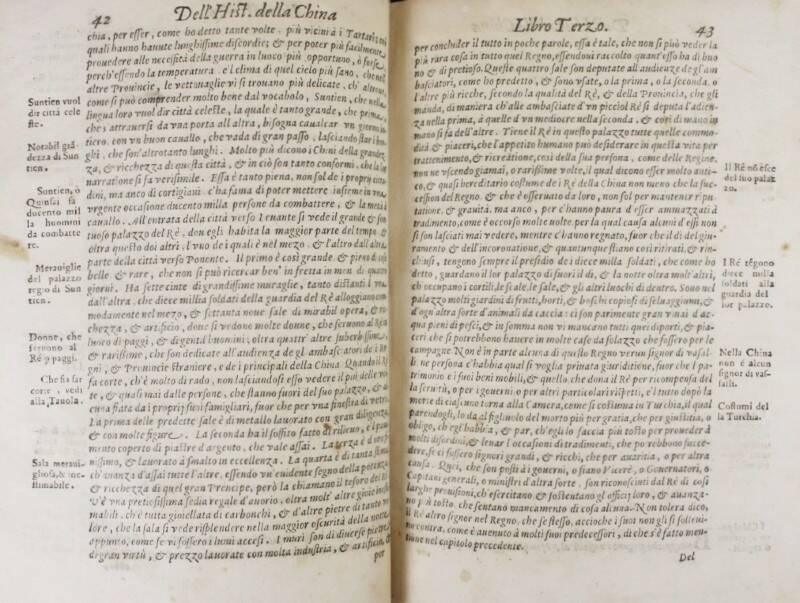 42 Dell'Hist. della China
chia, per esser, come ho detto tante volte più vicini à i Tartari; cõ i
quali hanno hauute lunghissime discordie; & per poter più facilmente
prouedere alle necessità della guerra in luoco più opportuno, ò forse
perch'essendo la temperatura e'l clima di quel cielo più sano, che nell'
altre Prouincie, le vettouaglie vi si trouano più delicate, ch'altroue,
come si può comprender molto bene dal vocabolo, Suntien, che nella
lingua loro vuol dir città celeste, la quale è tanto grande, che prima,
che s'attrauersi da vna porta all'altra, bisogna caualcar vn giorno in-
tiero, con vn buon cauallo, che vada di gran passo, lasciando star i bor-
ghi, che son'altrotanto lunghi. Molto più dicono i Chini della grandez-
za, & ricchezza di questa città, & in ciò son tanto conformi, che la lor
narratione si fà verisimile. Essa è tanto piena, non sol de i proprij citta-
dini, ma anco di cortigiani, c'ha fama di poter mettere insieme in vna
vrgente occasione ducento milla persone da combattere, & la metà à
cauallo. All'entrata della città verso Leuante si vede il grande & son-
tuoso palazzo del Rè, dou'egli habita la maggior parte del tempo, &
oltra questo doi altri, l'vno de i quali è nel mezo, & l'altro dall'altra
parte della città verso Ponente. Il primo è così grande, & pieno di cose
belle & rare, che non si può ricercar ben' in fretta in men di quattro
giorni. Ha sette cinte di grandissime muraglie, tanto distanti l'vna
dall'altra, che diece milla soldati della guardia del Rè alloggiano com-
modamente nel mezo, & settanta noue sale di mirabil opera, & ric-
chezza, & artificio, doue si vedono molte donne, che seruono al Rè in
luoco di paggi, & di gentil'huomini; oltra quattr'altre superbissime,
& rarissime, che son dedicate all'audienza de gl'ambasciatori de i Re-
gni, & Prouincie straniere, e de i principali della China Quando il Rè
fà corte, ch'è molto di rado, non lasciandosi esso vedere il più delle vol-
te, & quasi mai dalle persone, che stanno fuori del suo palazzo, & al-
cuna fiata da i proprij suoi famigliari, fuor che per vna finestra di vetro.
La prima delle predette sale è di metallo lauorato con gran diligenza,
& con molte figure. La seconda ha il soffito fatto di rilieuo, e'l pauí-
mento coperto di piastre d'argento, che vale assai. La terza è d'oro fi-
nissimo, & lauorato à smalto in eccellenza. La quarta è di tanta stima,
ch'auanza d'assai tutte l'altre, essendo vn'euidente segno della potenza,
& ricchezza di quel gran Prencipe, però la chiamano il tesoro del Rè.
V'è vna pretiosissima sedia regale d'auorio, oltra molt' altre gioie inesti-
mabili, ch'è tutta gioiellata di carbonchi, & d'altre pietre di tanto va-
lore, che la sala si vede risplendere nella maggior oscurità della notte,
appunto, come se vi fossero i lumi accesi. I muri son di diuerse pietre
di gran virtù, & prezzo lauorate con molta industria, & artificio, &
per
Suntien vuol
dir città cele
ste.
Notabil grã-
dezza di Sun
tien.
Suntien, ò
Quinsai fà
ducento mil
la huomini
da combatte
re.
Merauiglie
del palazzo
regio di Sun
tien.
Donne, che
seruono al
Rè p paggi.
Che sia far
corte, vedi
alla Tauola.
Sala meraui-
gliosa, & ine-
stimabile.
Libro Terzo. 43
per concluder il tutto in poche parole, essa è tale, che non si può veder la
più rara cosa in tutto quel Regno, essendoui raccolto quant'esso ha di buo
no & di pretioso. Queste quattro sale son deputate all'audienze degl'am
basciatori, come ho predetto, & sono vsate, ò la prima, ò la seconda, ò
l'altre più ricche, secondo la qualità del Rè, & della Prouincia, che gli
manda, di maniera ch'alle ambasciate d'vn picciol Rè si deputa l'audien
za nella prima, à quelle d'vn mediocre nella seconda, & così di mano in
mano si fà dell'altre. Tiene il Rè in questo palazzo tutte quelle commo-
dità, & piaceri, che l'appetito humano può desiderar in questa vita per
trattenimento, & ricreatione, così della sua persona, come delle Regine,
non ne vscendo giamai, ò rarissime volte, il qual dicono esser molto anti-
co, & quasi hereditario costume de i Rè della China non meno che la suc-
cession del Regno, & che è osseruato da loro, non sol per mantener riputa-
tatione, & grauità, ma anco, per c'hanno paura d'esser ammazzati à
tradimento, come è occorso molte volte, per la qual causa alcuni d'essi non
si son lasciati mai vedere, mentre c'hanno regnato, fuor che il dì del giu-
ramento & dell'incoronatione, & quantunque stiano così ritirati, & rin-
chiusi, tengono sempre il presidio de i diece milla soldati, che come ho
detto, guardano il lor palazzo di fuori il dì, & la notte oltra molt'altri,
ch'occupano i cortili, le scale, le sale, & gli altri luochi di dentro. Sono nel
palazzo molti giardini di frutti, horti, & boschi copiosi di seluaggiumi, &
d'ogni altra sorte d'animali da caccia: vi son parimente gran viuai d'ac-
qua pieni di pesci, & in somma non vi mancano tutti quei diporti, & pia-
ceri che si potrebbono hauere in molte case da solazzo che fossero per le
campagne Non è in parte alcuna di questo Regno verun signor di vasal-
li, ne persona c'habbia qual si voglia priuata giuriditione, fuor che l pa-
trimonio e i suoi beni mobili, & quello, che dona il Rè per ricompensa del
la seruitù, ò per i gouerni ò per altri particolari rispetti, e'l tutto dopò la
morte di ciascuno torna alla Camera, come si costuma in Turchia, il qual
parendogli, lo dà al figliuolo del morto più per gratia, che per giustitia, ò
obligo, ch'egl'habbia, & par, ch'egli lo faccia più tosto per prouedere à
molti disordini, & leuar l'occasioni di tradimenti, che potrebbono succe-
dere, se ci fossero signori grandi, & ricchi, che per auaritia, ò per altra
causa. Quei, che son posti à i gouerni, ò siano Vicerè, ò Gouernatori, ò
Capitani generali, ò ministri d'altra sorte, son riconosciuti dal Rè di così
larghe prouisioni, ch'esercitano & sostentano gl'officij loro, & auanza-
no più tosto, che sentano mancamento di cosa alcuna. Non tolera dico,
il Rè altro signor nel Regno, che se stesso, acciòche i suoi non gli si solleui-
no contra, come è auenuto à molti suoi predecessori, di che s'è fatto men-
tione nel capitolo precedente.
Del
Il Rè nõ esce
del suo palaz
zo.
I Rè tẽgono
diece milla
soldati alla
guardia del
lor palazzo.
Nella China
non è alcun
signor di vas-
salli.
Costumi del
la Turchia.